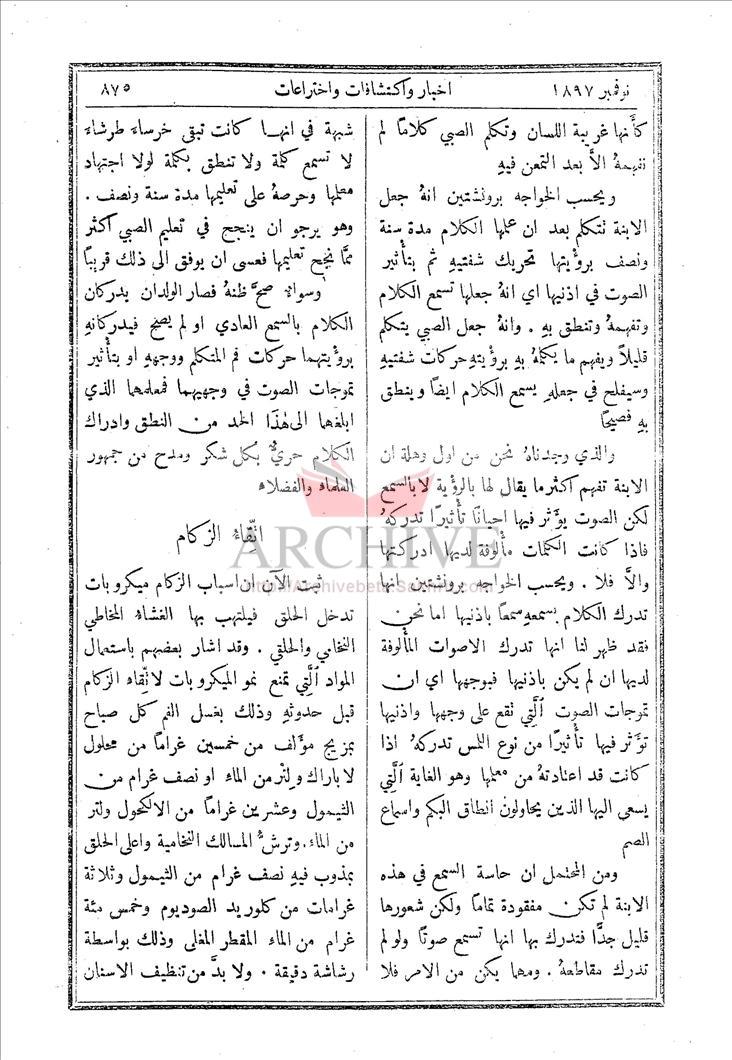 نوفمبر ١٨٩٧
اخبار واكتشافات واختراعات
٨٧٥
كأنها غريبة اللسان وتكلم الصبي كلامًا لم
نفهمهُ الاَّ بعد التمعن فيهِ
ويحسب الخواجه برونشتين انهُ جعل
الابنة تتكلم بعد ان علمها الكلام مدة سنة
ونصف برؤيتها تحريك شفتيهِ ثم بتأثير
الصوت في اذنيها اي انهُ جعلها تسمع الكلام
وتفهمهُ وتنطق بهِ . وانهُ جعل الصبي يتكلم
قليلاً ويفهم ما يكلمهُ بهِ برؤيتهِ حركات شفتيهِ
وسيفلح في جعلهِ يسمع الكلام ايضًا وينطق
بهِ فصيحًا
والذي وجدناهُ نحن من اول وهلة ان
الابنة تفهم اكثر ما يقال لها بالرؤية لا بالسمع
لكن الصوت يؤثر فيها احيانًا تأثيرًا تدركهُ
فاذا كانت الكلمات مألوفة لديها ادركتها
والاَّ فلا . ويحسب الخواجه برونشتين انها
تدرك الكلام بسمعهِ سمعًا باذنيها اما نحن
فقد ظهر لنا انها تدرك الاصوات المألوفة
لديها ان لم يكن باذنيها فبوجهها اي ان
تموجات الصوت الَّتي تقع على وجهها واذنيها
تؤثر فيها تأثيرًا من نوع اللمس تدركهُ اذا
كانت قد اعتادتهُ من معلمها وهو الغاية الَّتي
يسعى اليها الذين يحاولون انطاق البكم واسماع
الصم
ومن المحتمل ان حاسة السمع في هذه
الابنة لم تكن مفقودة تمامًا ولكن شعورها
قليل جدًّا فتدرك بها انها تسمع صوتًا ولو لم
تدرك مقاطعهُ . ومهما يكن من الامر فلا
شبهة في انها كانت تبقى خرساء طرشاء
لا تسمع كلمة ولا تنطق بكلمة لولا اجتهاد
معلمها وحرصهُ على تعليمها مدة سنة ونصف .
وهو يرجو ان ينجح في تعليم الصبي اكثر
ممَّا نجح تعليمها فعسى ان يوفق الى ذلك قريبًا
وسواءٌ صحَّ ظنهُ فصار الولدان يدركان
الكلام بالسمع العادي او لم يصح فيدركانهِ
برؤيتهما حركات فم المتكلم ووجههِ او بتأثير
تموجات الصوت في وجهيهما فمعلمهما الذي
ابلغهما الى هٰذَا الحد من النطق وادراك
الكلام حريٌّ بكل شكر ومدح من جمهور
العلماء والفضلاء
اتّقاءُ الزكام
ثبت الآن ان اسباب الزكام ميكروبات
تدخل الحلق فيلتهب بها الغشاء المخاطي
النخامي والحلقي . وقد اشار بعضهم باستعمال
المواد الَّتي تمنع نمو الميكروبات لاتّقاء الزكام
قبل حدوثهِ وذلك بغسل الفم كل صباح
بمزيج مؤلف من خمسين غرامًا من محلول
لاباراك ولتر من الماء او نصف غرام من
الثيمول وعشرين غرامًا من الالكحول ولتر
من الماء . وترشُّ المسالك النخامية واعلى الحلق
بمذوب فيهِ نصف غرام من الثيمول وثلاثة
غرامات من كلوريد الصوديوم وخمس مئة
غرام من الماء المقطر المغلى وذلك بواسطة
رشاشة دقيقة . ولا بدَّ من تنظيف الاسنان
ARCHIVE